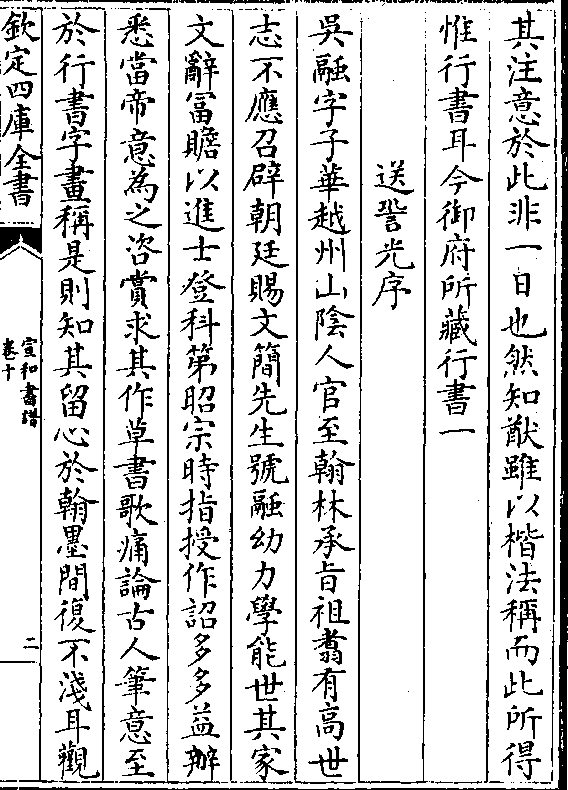 其注意於此非一日也然知猷雖以楷法稱而此所得
惟行書耳今御府所藏行書一
送䛒光序
吳融字子華越州山陰人官至翰林承旨祖翥有高世
志不應召辟朝廷賜文簡先生號融幼力學能世其家
文辭冨贍以進士登科第昭宗時指授作詔多多益辦
悉當帝意為之咨賞求其作草書歌痛論古人筆意至
於行書字畫稱是則知其留心於翰墨間復不淺耳觀
欽定四庫全書
宣和書譜
卷十
二